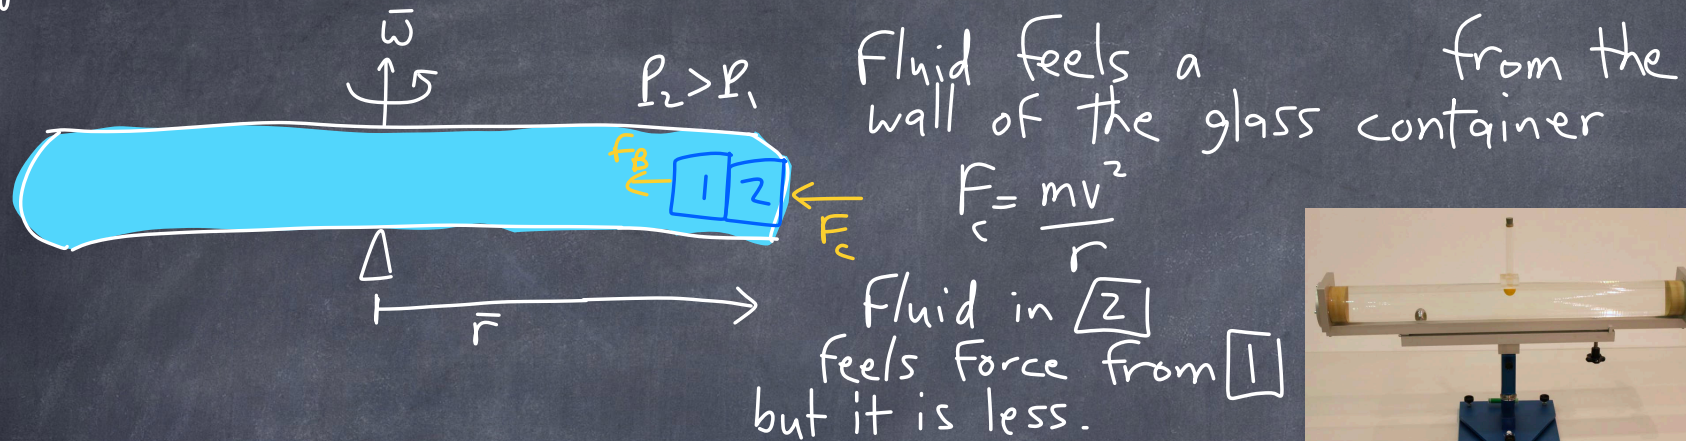 ω̄
P₂ > P₁
f_B
1 2
F_c
r̄
Fluid feels a from the
wall of the glass container
F_c = mv²/r
Fluid in 2
feels Force from 1
but it is less.